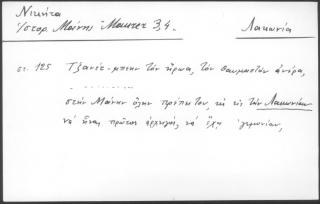 Νικήτα
Ιστορ. Μάνης Μαυτετ 3,4. Λακωνία
στ. 125 Τζανέτ-μπεην τὸν ἥρωα, τὸν θαυμαστὸν ἄνδρα,
στὴν Μάνην ὅλην πρέπει του, κι εἰς τὴν Λακωνίαν
νὰ ἦναι πρῶτος ἀρχηγός, νὰ ἔχῃ ἡγεμονίαν,